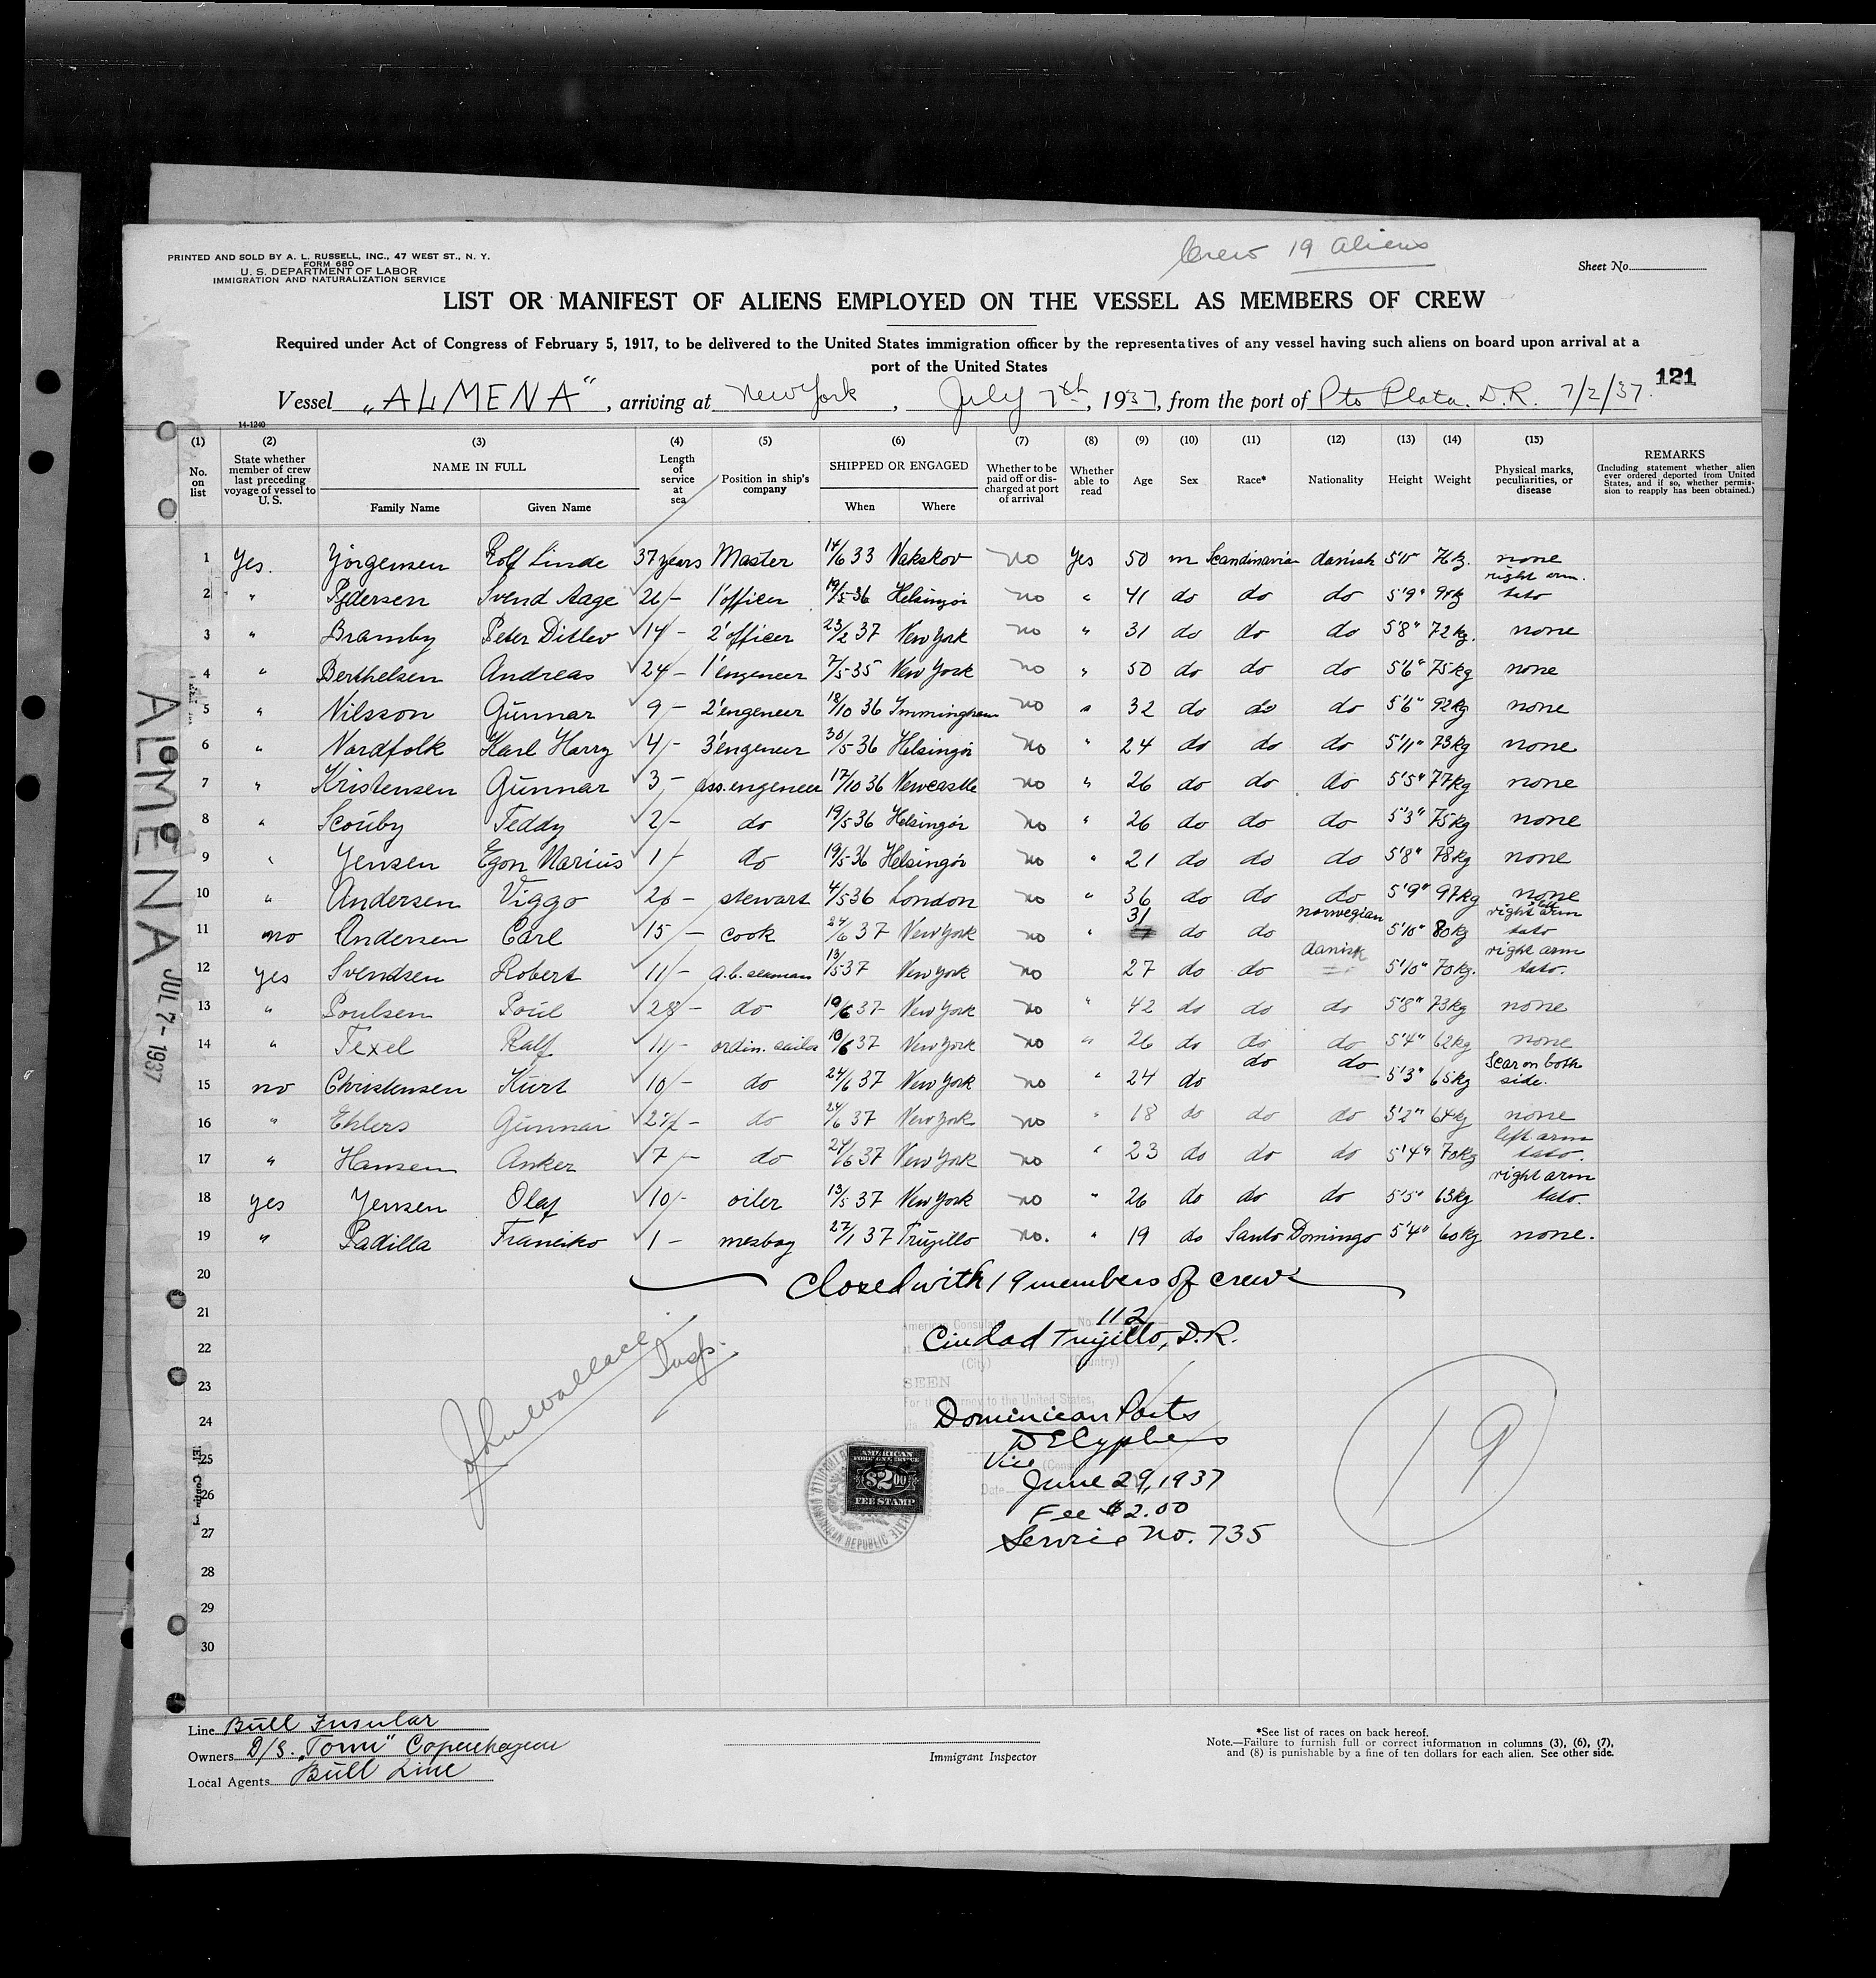 Crew 19 aliens
PRINTED AND SOLD BY A. L. RUSSELL, INC., 47 WEST ST., N. Y.
FORM 680
U. S. DEPARTMENT OF LABOR
IMMIGRATION AND NATURALIZATION SERVICE
Sheet No.
LIST OR MANIFEST OF ALIENS EMPLOYED ON THE VESSEL AS MEMBERS OF CREW
Required under Act of Congress of February 5, 1917, to be delivered to the United States immigration officer by the representatives of any vessel having such aliens on board upon arrival at a
port of the United States
121
Vessel „ALMENA“, arriving at New York, July 7th, 1937, from the port of Pto Plata. D.R. 7/2/37.
14-1240
(1) (2) (3) (4) (5) (6) (7) (8) (9) (10) (11) (12) (13) (14) (15)
No. on list State whether member of crew last preceding voyage of vessel to U. S. NAME IN FULL Family Name Given Name Length of service at sea Position in ship's company SHIPPED OR ENGAGED When Where Whether to be paid off or discharged at port of arrival Whether able to read Age Sex Race* Nationality Height Weight Physical marks, peculiarities, or disease REMARKS (Including statement whether alien ever ordered deported from United States, and if so, whether permission to reapply has been obtained.)
1 Yes. Jörgensen Rolf Linde 37 years Master 14/6 33 Nakskov no Yes 50 m Scandinavian danish 5'11" 76 kg. none
2 " Pedersen Svend Aage 26 – 1' officer 19/5-36 Helsingör no " 41 do do do 5'9" kg right arm. tato
3 " Bramby Peter Ditlev 14 – 2' officer 23/2 37 New York no " 31 do do do 5'8" 72 kg. none
4 " Berthelsen Andreas 24 – 1' engeneer 7/5-35 New York no " 50 do do do 5'6" 75 kg none
5 " Nilsson Gunnar 9 – 2' engeneer 18/10 36 Immingham no " 32 do do do 5'6" 92 kg none
6 " Nordfolk Karl Harry 4 – 3' engeneer 30/5-36 Helsingör no " 24 do do do 5'11" 73 kg none
7 " Kristensen Gunnar 3 – ass. engeneer 17/10 36 Newcastle no " 26 do do do 5'5" 77 kg none
8 " Scouby Teddy 2 – do 19/5 36 Helsingör no " 26 do do do 5'3" 75 kg none
9 " Jensen Egon Marius 1 – do 19/5 36 Helsingör no " 21 do do do 5'8" 78 kg none
10 " Andersen Viggo 20 – stewart 4/5 36 London no " 36 do do do 5'9" 97 kg none
11 no Andersen Carl 15 – cook 24/6 37 New York no " 31 do do norwegian 5'10" 80 kg right arm tato
12 yes Svendsen Robert 11 – a.b. seaman 13/5 37 New York no 27 do do danish 5'10" 70 kg. right arm tato.
13 " Poulsen Poul 28 – do 10/6 37 New York no " 42 do do do 5'8" 73 kg none
14 " Texel Ralf 11 – ordin. sailor 10/6 37 New York no " 26 do do do 5'4" 62 kg none
15 no Christensen Kurt 10 – do 24/6 37 New York no " 24 do do do 5'3" 65 kg Scar on both side.
16 " Ehlers Gunnar 2½ – do 24/6 37 New York no " 18 do do do 5'2" 64 kg none
17 " Hansen Anker 7 – do 24/6 37 New York no " 23 do do do 5'4" 70 kg left arm tato.
18 yes Jensen Olaf 10 – oiler 13/5 37 New York no " 26 do do do 5'5" 63 kg right arm tato.
19 " Padilla Francisko 1 – mesboy 27/1 37 Trujillo no. " 19 do Santo Domingo 5'4" 60 kg none.
20 Closed with 19 members of crew
21 American Consulate No. 112
22 Ciudad Trujillo, D.R.
(City) (Country)
23 SEEN
For the journey to the United States,
24 Dominican Ports
25 Vice
26 Date June 29, 1937
Fee $2.00
27 Service No. 735
28
29
30
John Wallace Insp.
AMERICAN
FOREIGN SERVICE
$2.00
FEE STAMP
19
ALMENA JUL 7 - 1937
Line Bull Insular
Owners D/S. „Torm“ Copenhagen
Local Agents Bull Line
Immigrant Inspector
*See list of races on back hereof.
Note.—Failure to furnish full or correct information in columns (3), (6), (7),
and (8) is punishable by a fine of ten dollars for each alien. See other side.